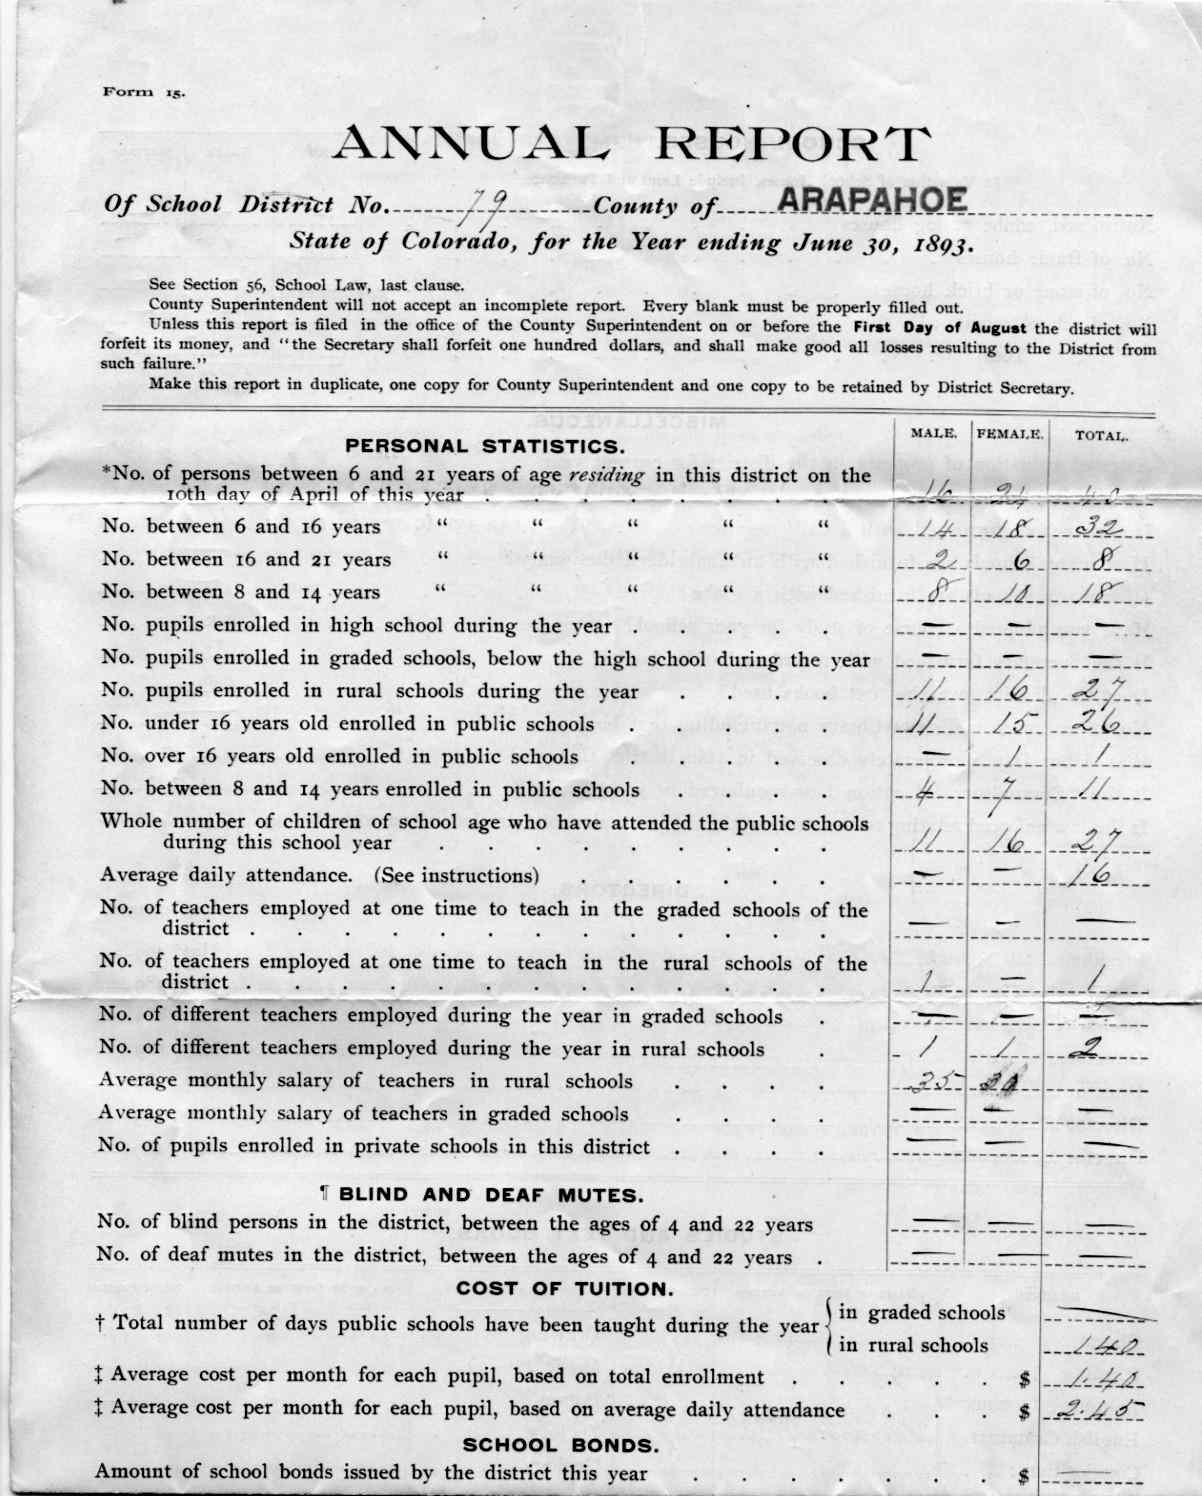 Form 15.
ANNUAL REPORT
Of School District No. 79 County of ARAPAHOE
State of Colorado, for the Year ending June 30, 1893.
See Section 56, School Law, last clause.
County Superintendent will not accept an incomplete report. Every blank must be properly filled out.
Unless this report is filed in the office of the County Superintendent on or before the First Day of August the district will
forfeit its money, and "the Secretary shall forfeit one hundred dollars, and shall make good all losses resulting to the District from
such failure."
Make this report in duplicate, one copy for County Superintendent and one copy to be retained by District Secretary.
PERSONAL STATISTICS. MALE. FEMALE. TOTAL.
*No. of persons between 6 and 21 years of age residing in this district on the
10th day of April of this year . . . . . . . . 16 24 40
No. between 6 and 16 years " " " " " 14 18 32
No. between 16 and 21 years " " " " " 2 6 8
No. between 8 and 14 years " " " " " 8 10 18
No. pupils enrolled in high school during the year . . . . . — — —
No. pupils enrolled in graded schools, below the high school during the year — — —
No. pupils enrolled in rural schools during the year . . . . 11 16 27
No. under 16 years old enrolled in public schools . . . . . 11 15 26
No. over 16 years old enrolled in public schools . . . . . — 1 1
No. between 8 and 14 years enrolled in public schools . . . . 4 7 11
Whole number of children of school age who have attended the public schools
during this school year . . . . . . . . . 11 16 27
Average daily attendance. (See instructions) . . . . . . — — 16
No. of teachers employed at one time to teach in the graded schools of the
district . . . . . . . . . . . . . — — —
No. of teachers employed at one time to teach in the rural schools of the
district . . . . . . . . . . . . . 1 — 1
No. of different teachers employed during the year in graded schools . — — —
No. of different teachers employed during the year in rural schools . 1 1 2
Average monthly salary of teachers in rural schools . . . . 35
Average monthly salary of teachers in graded schools . . . . — — —
No. of pupils enrolled in private schools in this district . . . . — — —
¶ BLIND AND DEAF MUTES.
No. of blind persons in the district, between the ages of 4 and 22 years — — —
No. of deaf mutes in the district, between the ages of 4 and 22 years . — — —
COST OF TUITION.
† Total number of days public schools have been taught during the year { in graded schools —
in rural schools 140
‡ Average cost per month for each pupil, based on total enrollment . . . . . $ 1.40
‡ Average cost per month for each pupil, based on average daily attendance . . . $ 2.45
SCHOOL BONDS.
Amount of school bonds issued by the district this year . . . . . . . $ —